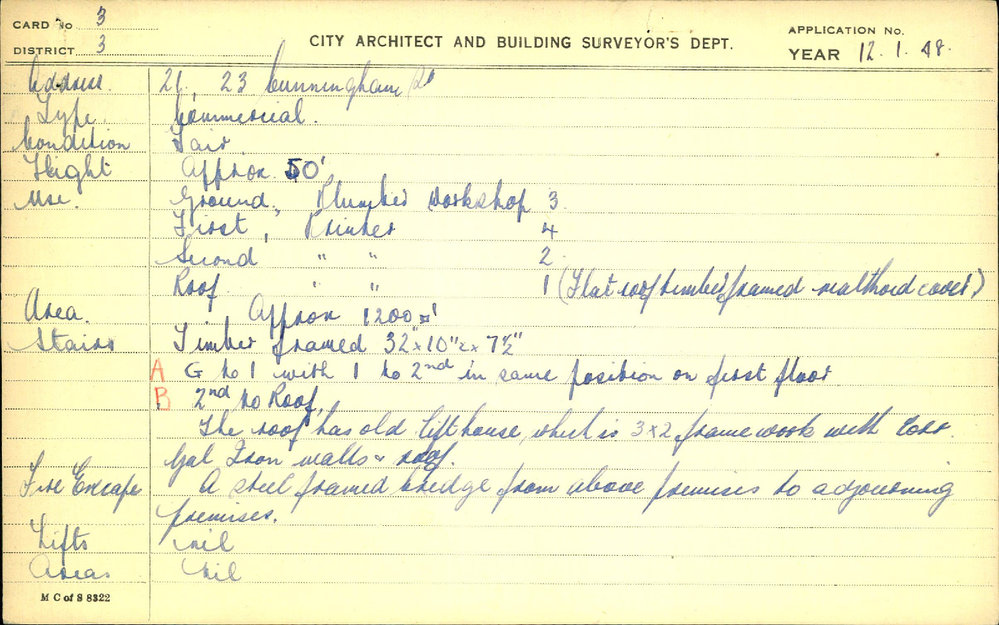 CARD No 3
DISTRICT 3
CITY ARCHITECT AND BUILDING SURVEYOR'S DEPT.
APPLICATION No.
YEAR 12.1.48.
Address. 21, 23 Cunningham St
Type. Commercial.
Condition Fair
Height Approx. 50'
Use. Ground, Plumber Workshop 3.
First, Printer 4
Second " " 2.
Roof. " " 1 (Flat roof timber framed malthoid cover)
Area. Approx 1200 □'
Stairs Timber framed 32" x 10" x 7½"
A G to 1 with 1 to 2nd in same position on first floor
B 2nd to Roof.
The roof has old lift house, which is 3 x 2 frame work with Corr.
Gal Iron walls & roof.
Fire Escape A steel framed bridge from above premises to adjourning
premises.
Lifts nil
Areas nil
M C of S 8322